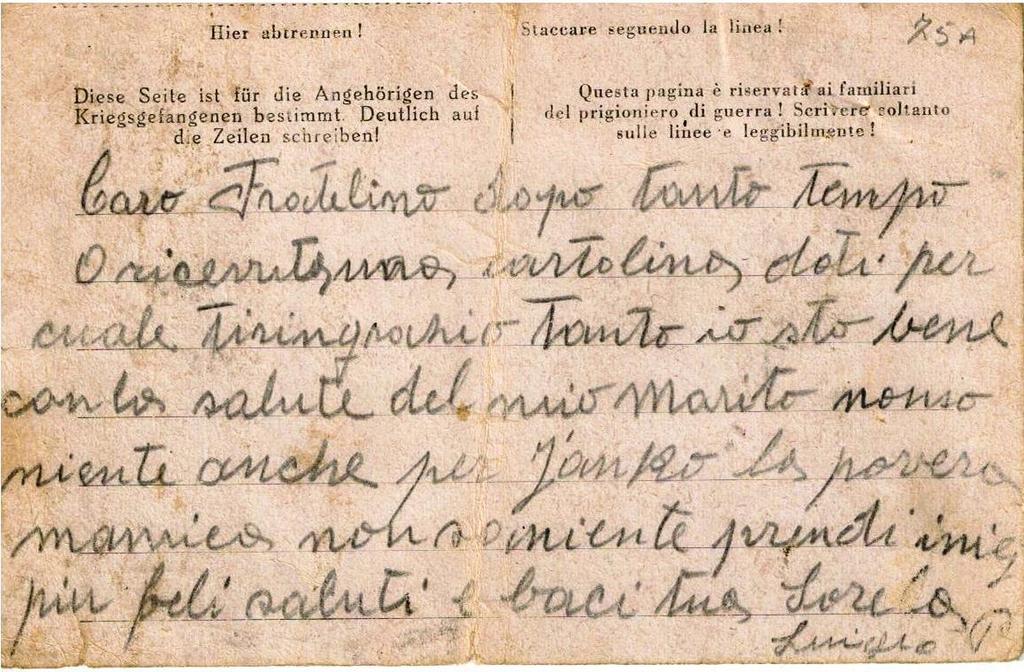 Hier abtrennen!
Staccare seguendo la linea!
75A
Diese Seite ist für die Angehörigen des
Kriegsgefangenen bestimmt. Deutlich auf
die Zeilen schreiben!
Questa pagina è riservata ai familiari
del prigioniero di guerra! Scrivere soltanto
sulle linee e leggibilmente!
Caro Fratelino dopo tanto tempo
O ricevuta una cartolina doti per
cuale tiringrazio Tanto io sto bene
con la salute del mio Marito nonso
niente anche per Janko la povera
mamica non sa niente prendi i miei
piu beli saluti e baci tua Sorela